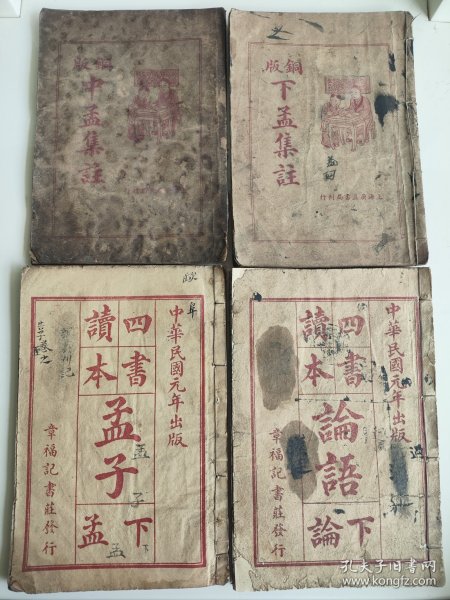 銅版
中孟集註
銅版
下孟集註
上海廣益書局刊行
中華民國元年出版
四書
讀本
孟子
下
孟
章福記書莊發行
孟
子
下
孟
中華民國元年出版
四書
讀本
論語
下
論
章福記書莊發行
孔夫子旧书网